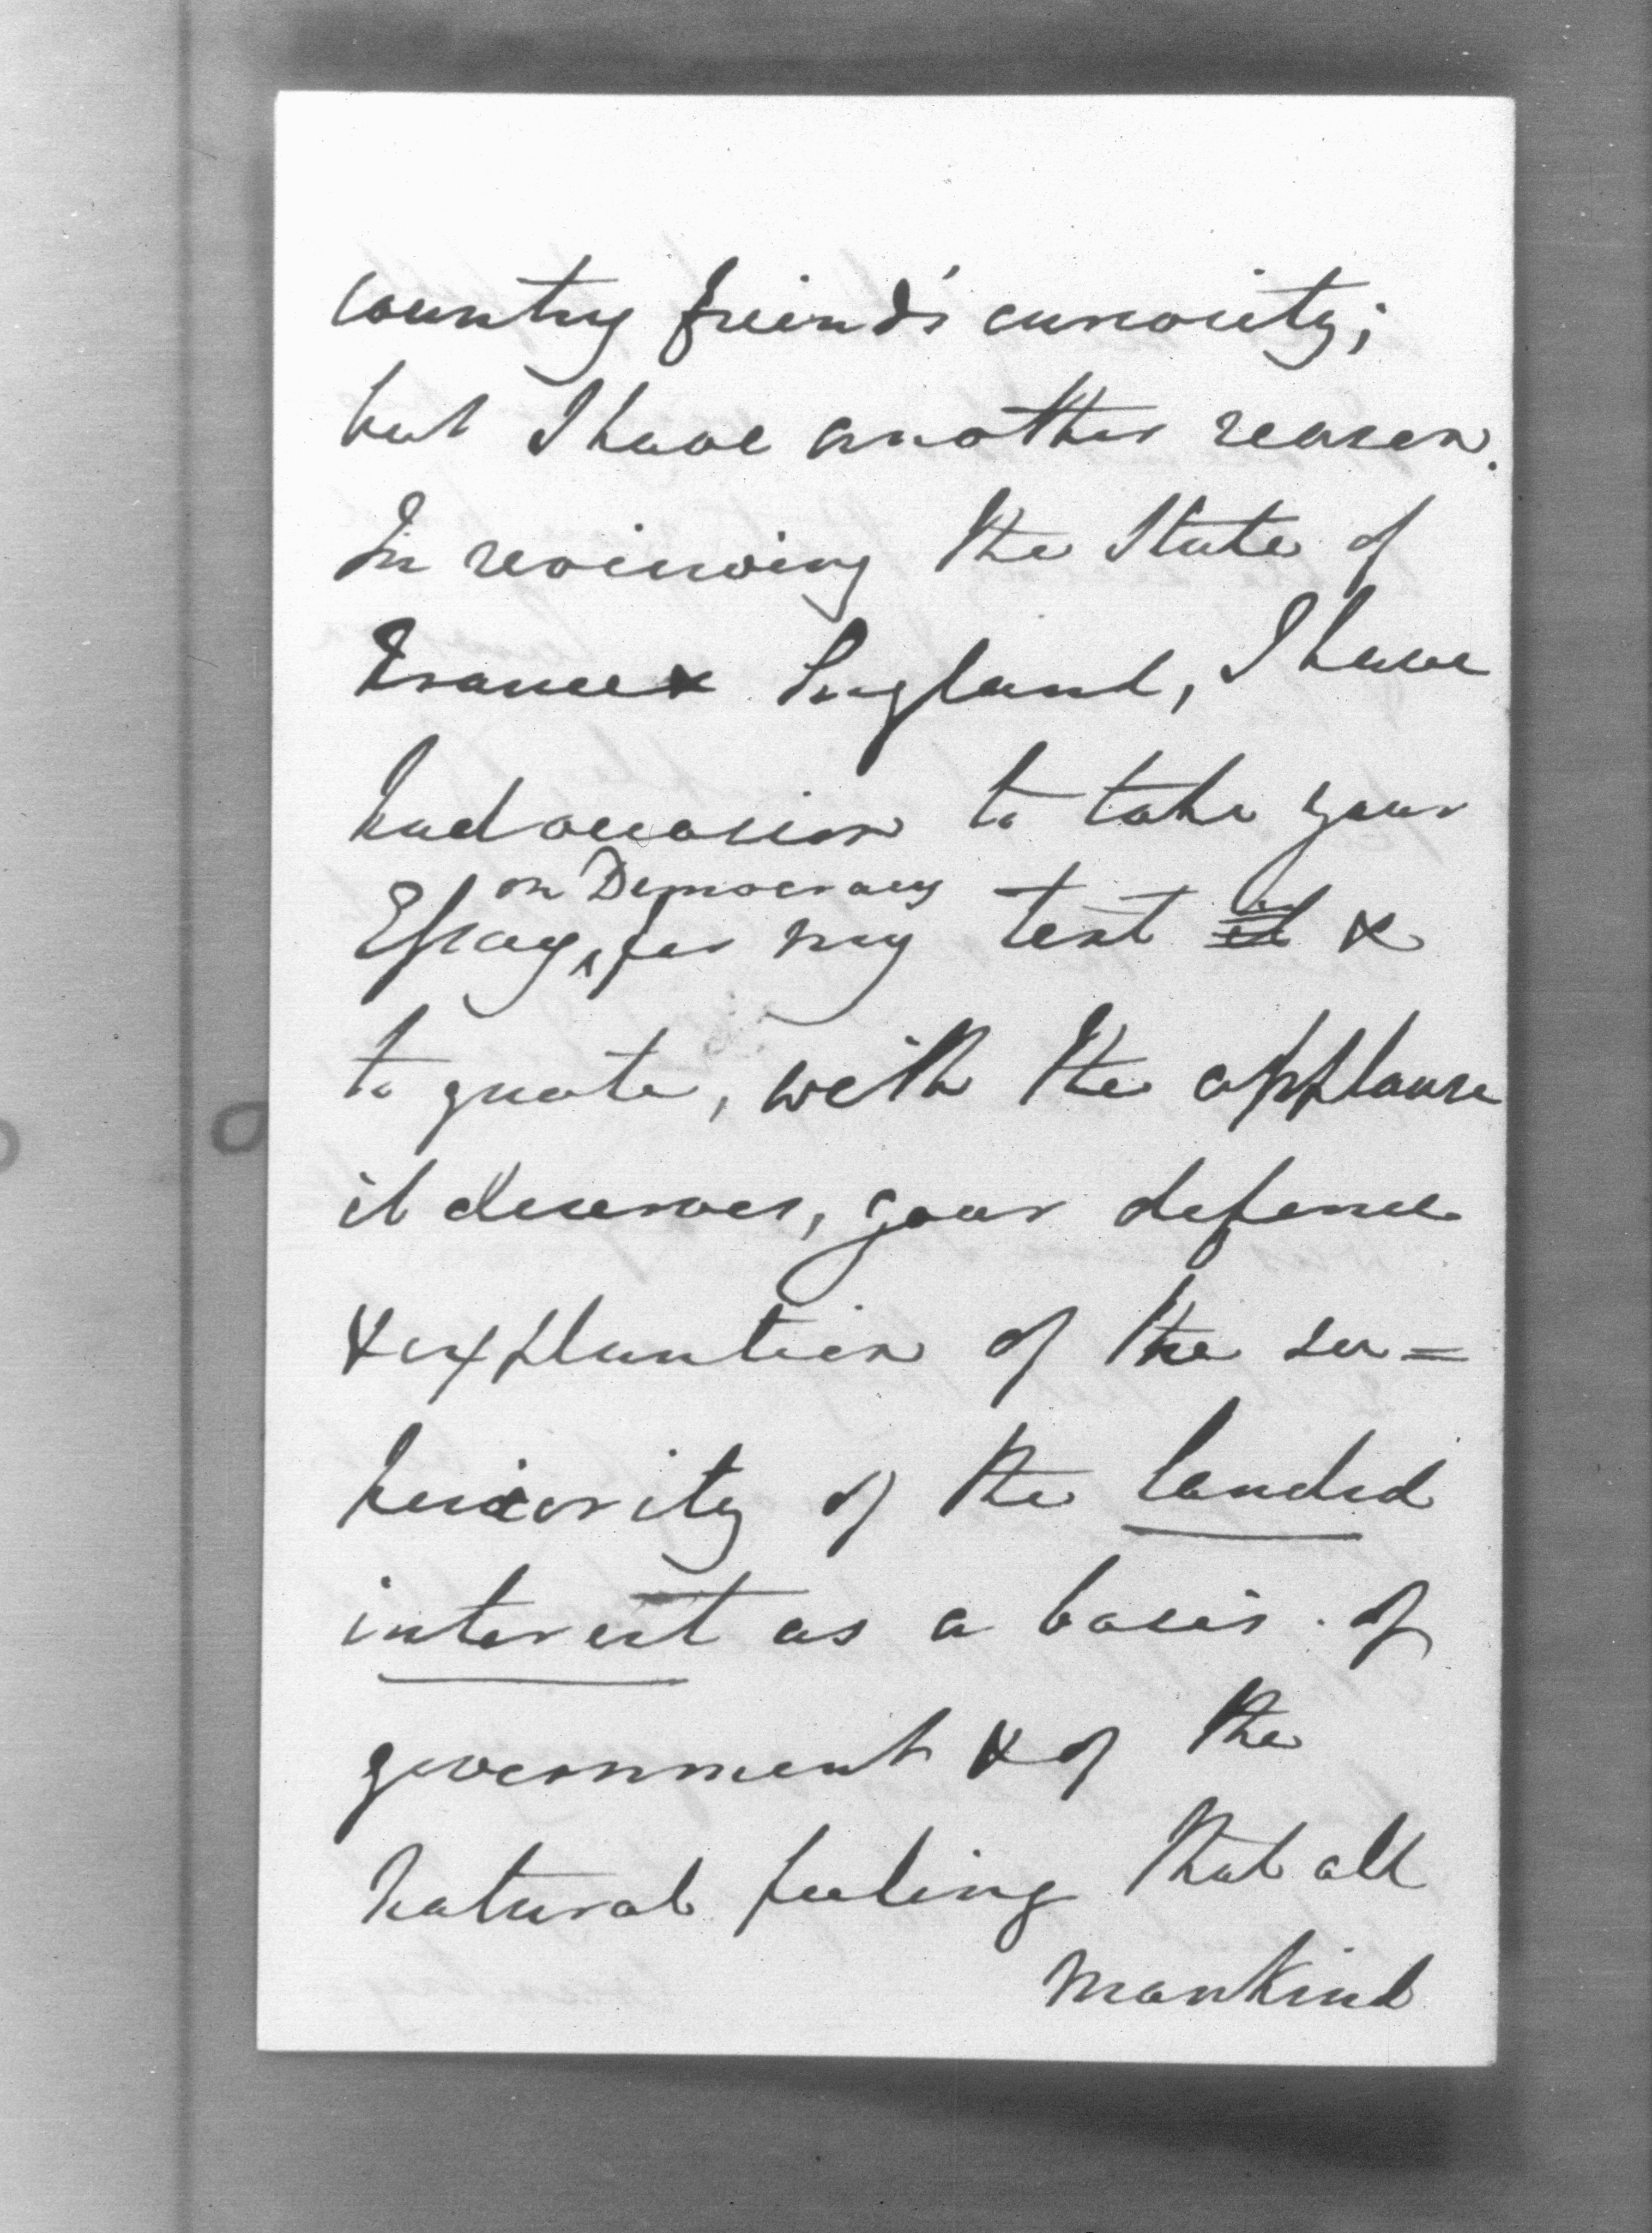 country friend's curiosity;
but I have another reason.
In reviewing the State of
France & England, I have
had occasion to take your
on Democracy
Essay, for my text it &
to quote, with the applause
it deserves, your defence
& explantion of the su=
periority of the landed
interest as a basis of
government & of the
natural feeling that all
mankind